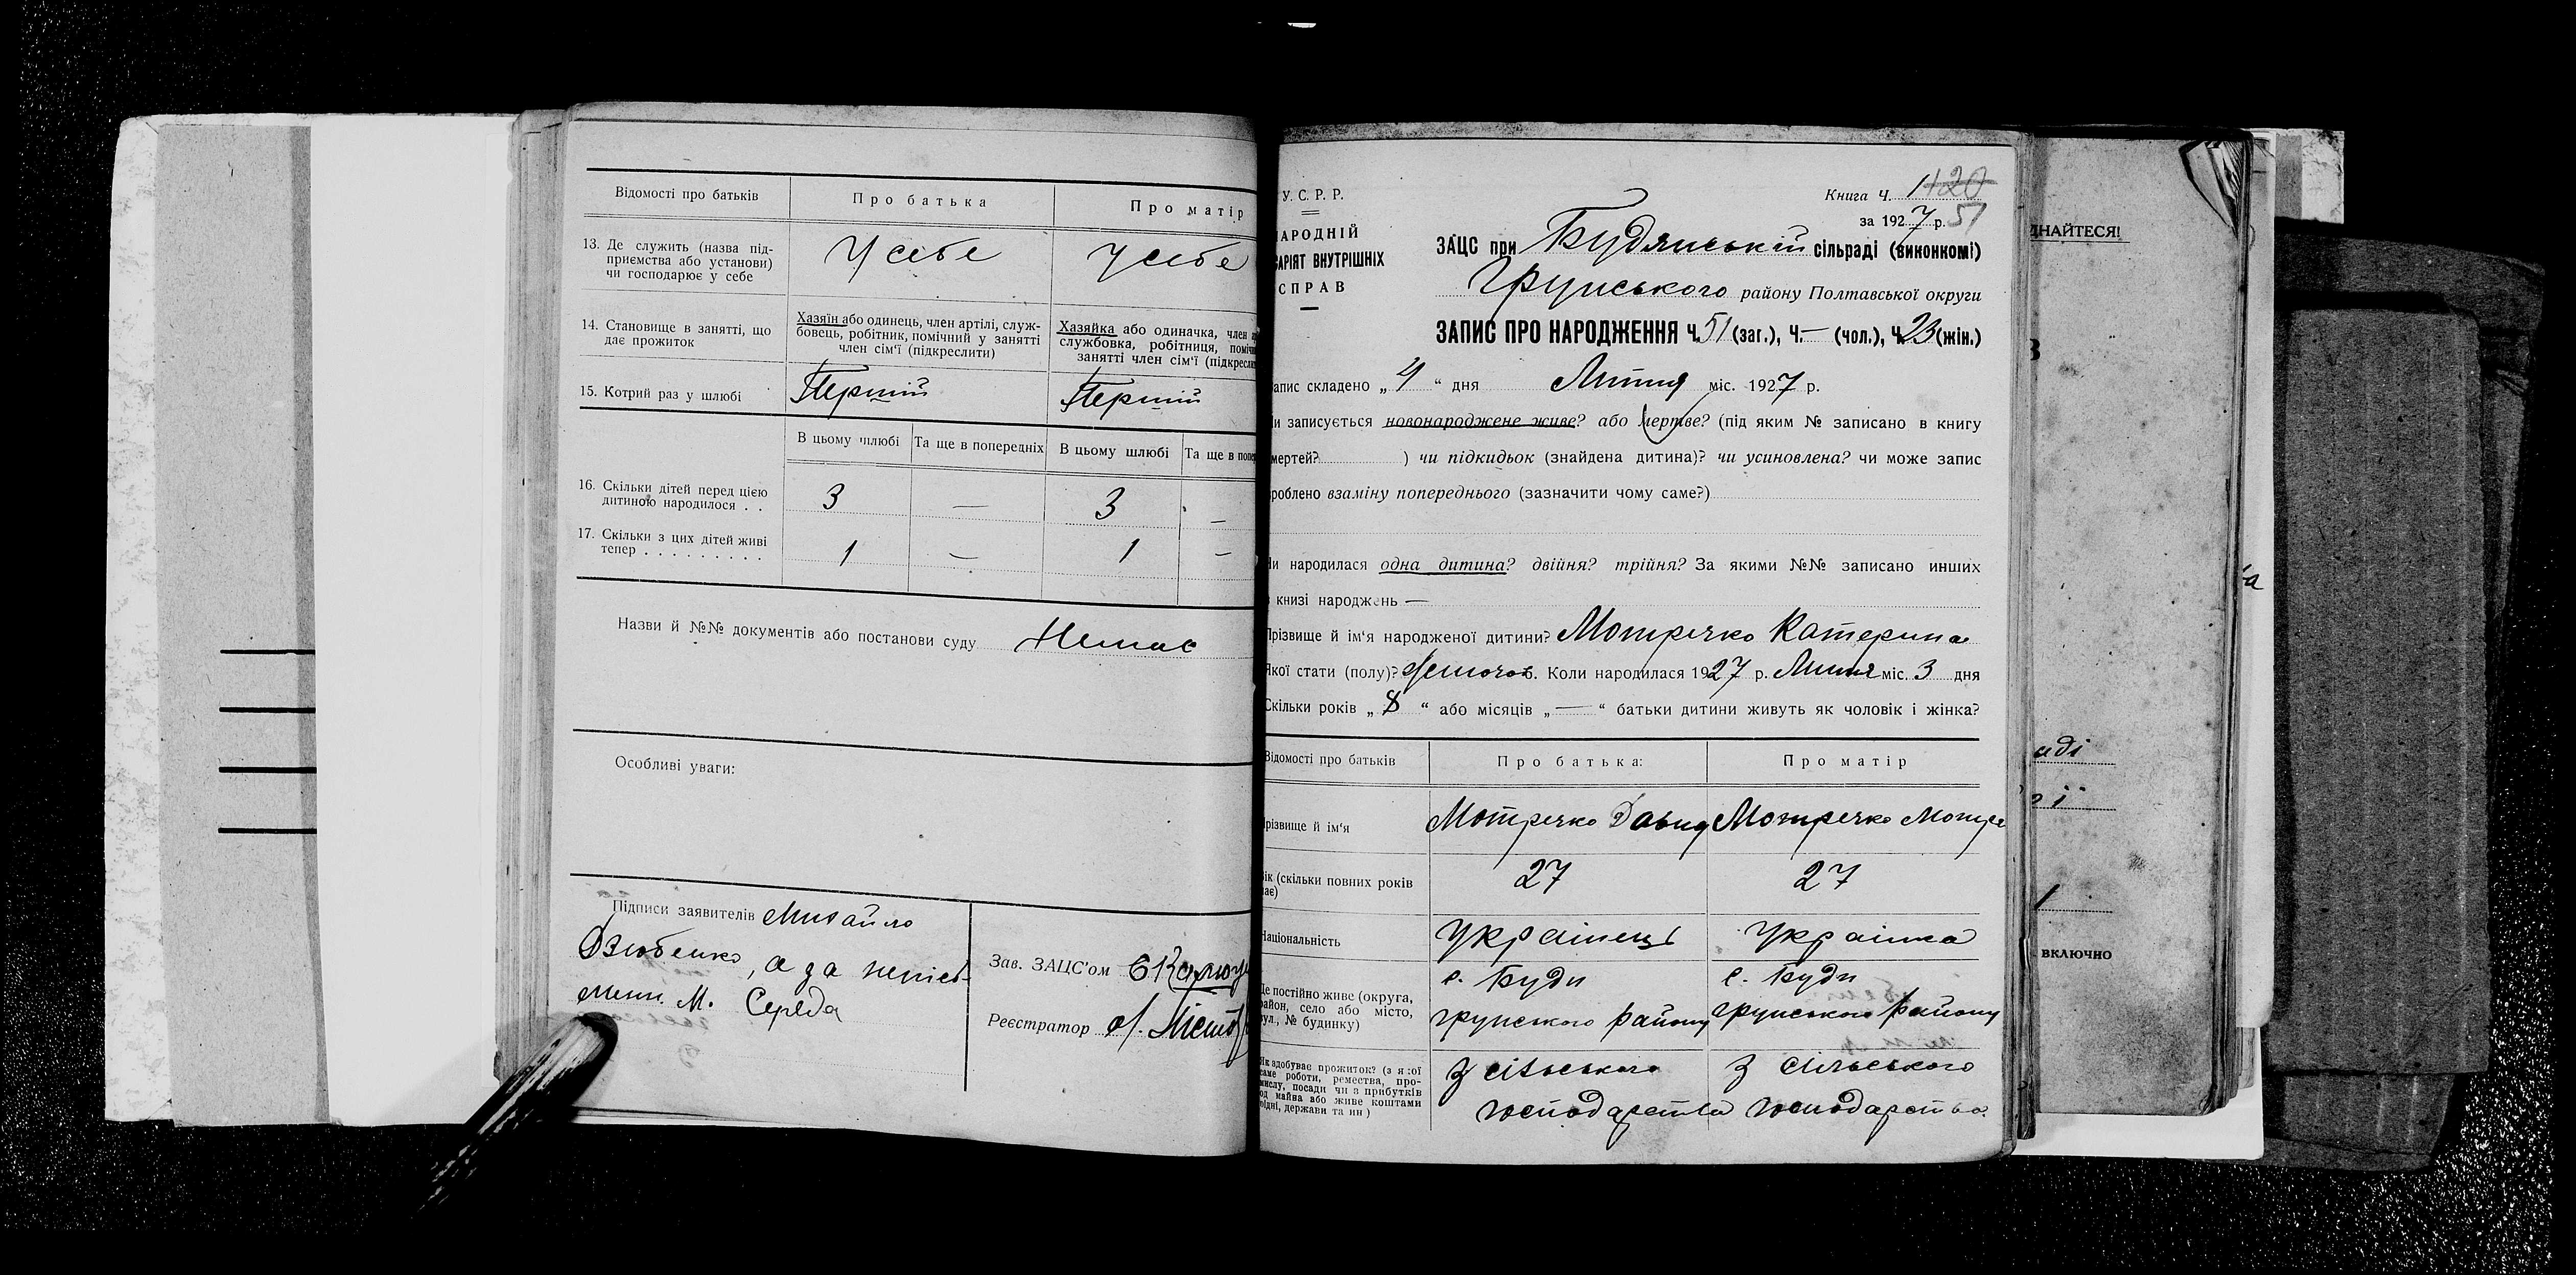 Відомості про батьків
Про батька
Про матір
13. Де служить (назва під-
приємства або установи)
чи господарює у себе
У себе
У себе
14. Становище в занятті, що
дає прожиток
Хазяїн або одинець, член артілі, служ-
бовець, робітник, помічний у занятті
член сім'ї (підкреслити)
Хазяйка або одиначка, член
службовка, робітниця,
занятті член сім'ї
15. Котрий раз у шлюбі
Перший
Перший
В цьому шлюбі
Та ще в попередніх
В цьому шлюбі
Та ще в
16. Скільки дітей перед цією
дитиною народилося . .
3 — 3 —
17. Скільки з цих дітей живі
тепер . . . . . . . . .
1 — 1 —
Назви й №№ документів або постанови суду Немає
Особливі уваги:
Підписи заявителів Михайло
Дзюбенко, а за неписьмен. М. Середа
Зав. ЗАЦС'ом
Реєстратор
У. С. Р. Р.
Книга Ч. 1 120
за 1927 р. 51
НАРОДНІЙ
ВНУТРІШНІХ
СПРАВ
ЗАЦС при Будянській сільраді (виконкомі)
Грунського району Полтавської округи
ЗАПИС ПРО НАРОДЖЕННЯ Ч. 51 (заг.), Ч. — (чол.), Ч. 23 (жін.)
Запис складено „4“ дня Липня міс. 1927 р.
Чи записується новонароджене живе? або мертве? (під яким № записано в книгу
смертей? ) чи підкидьок (знайдена дитина)? чи усиновлена? чи може запис
зроблено взаміну попереднього (зазначити чому саме?)
Чи народилася одна дитина? двійня? трійня? За якими №№ записано инших
в книзі народжень —
Прізвище й ім'я народженої дитини? Мотречко Катерина
Якої стати (полу)? Жіночоб. Коли народилася 1927 р. Липня міс. 3 дня
Скільки років „8“ або місяців „—“ батьки дитини живуть як чоловік і жінка?
Відомості про батьків
Про батька:
Про матір
Прізвище й ім'я
Мотречко Давид
Мотречко Мотря
Вік (скільки повних років
має)
27
27
Національність
Українець
Українка
Де постійно живе (округа,
район, село або місто,
вул., № будинку)
с. Буди
грунського району
с. Буди
грунського району
Як здобуває прожиток? (з якої
саме роботи, ремества, про-
мислу, посади чи з прибутків
од майна або живе коштами
рідні, держави та ин)
З сільського
господарства
З сільського
господарства
ДНАЙТЕСЯ!
аді
ої
1
ВКЛЮЧНО